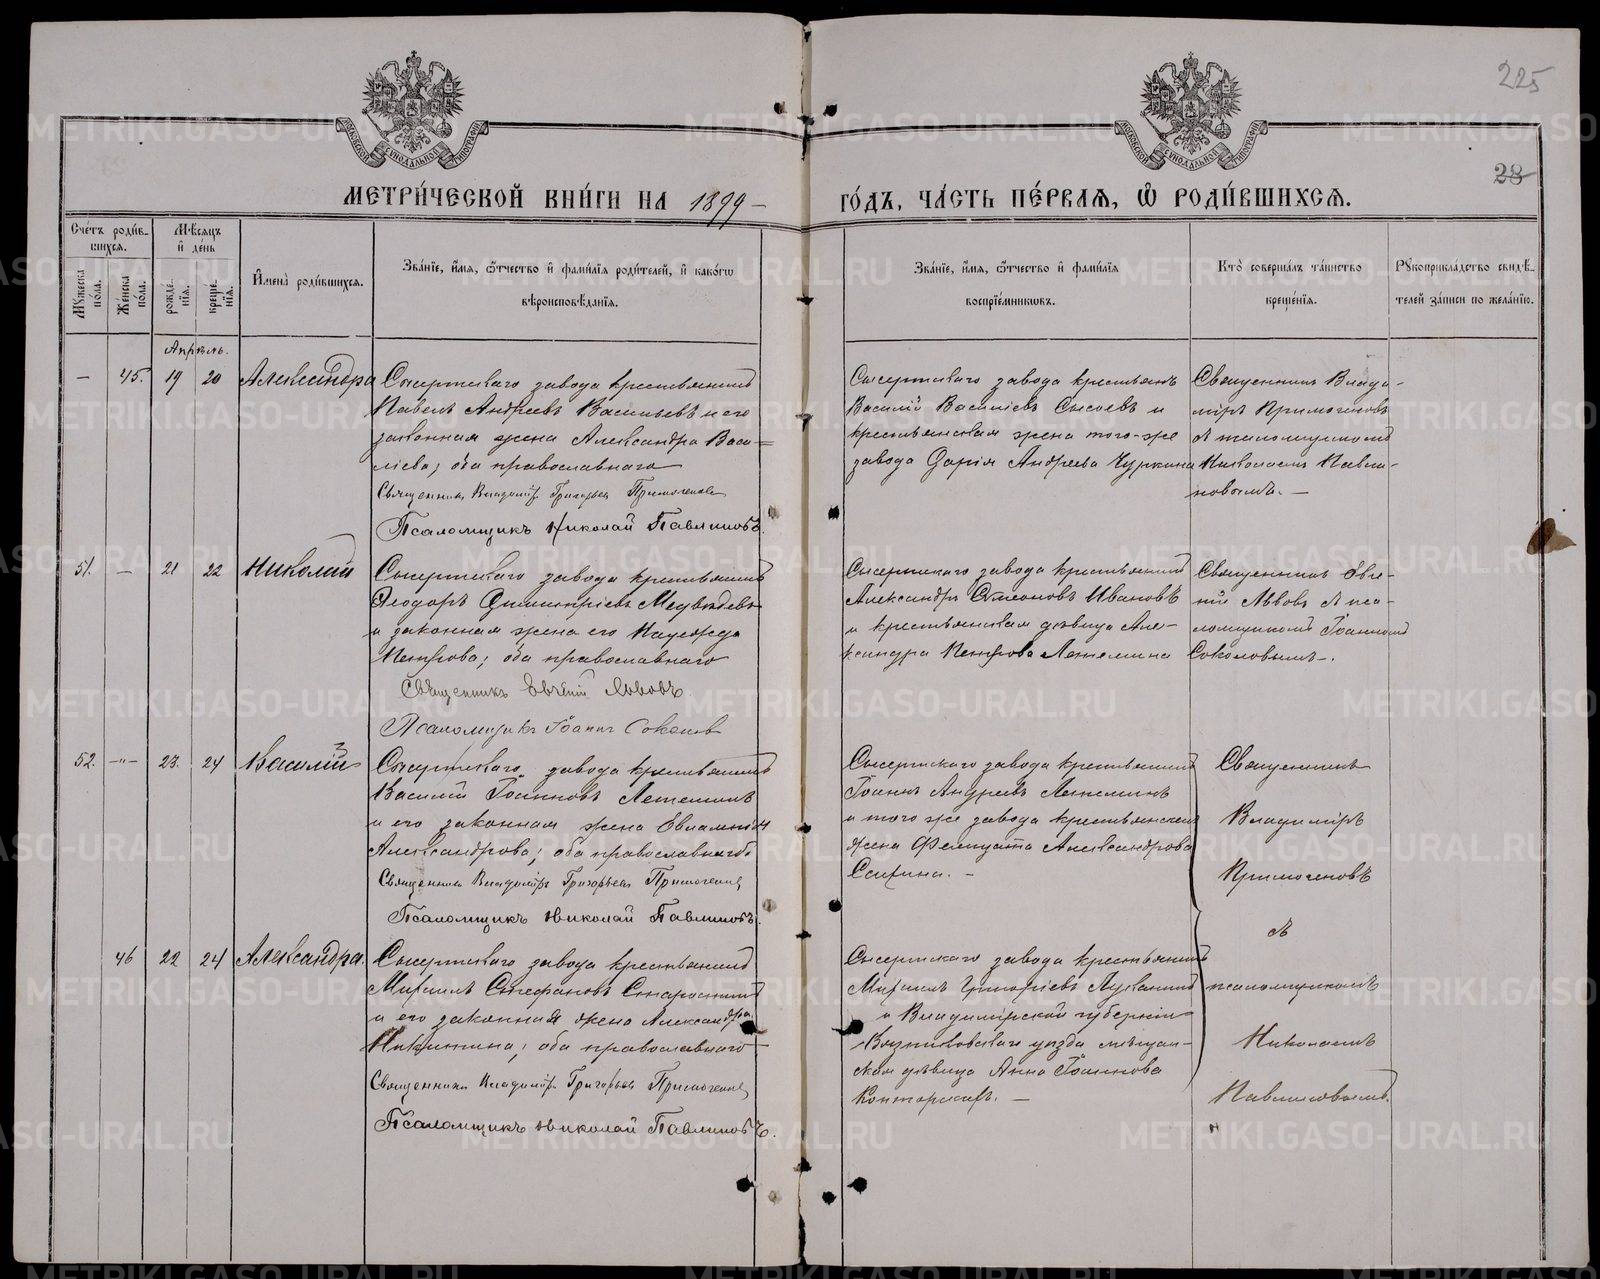 225
28
МЕТРИ́ЧЕСКОЙ КНИ́ГИ НА 1899 –
ГО́ДЪ, ЧА́СТЬ ПЕ́РВАЯ, Ѽ РОДИ́ВШИХСЯ.
Сче́тъ роди́в-
шихся.
Мꙋжеска пола.
Женска по́ла.
Мѣ́сяцъ и҆ де́нь
рожде́нїѧ.
креще́нїѧ.
И҆мена̀ роди́вшихся.
Зва́нїе, и҆́мѧ, ѻ҆́тчество и҆ фамѝлїѧ роди́телей, и҆ како́гѡ
вѣроисповѣ́данїѧ.
Зва́нїе, и҆́мѧ, ѻ҆́тчество и҆ фамѝлїѧ
воспрїе́мникѡвъ.
Кто̀ соверша́лъ та́инство
креще́нїѧ.
Рꙋкоприкла́дство свидѣ́-
телей за́писи по жела́нїю.
Апрѣль.
— 45. 19 20 Александра
Сысертскаго завода крестьянинъ
Павелъ Андреевъ Васильевъ и его
законная жена Александра Васи-
лiева; оба православнаго
Священникъ Владимiръ Григорьевъ Примогеновъ
Псаломщикъ Николай Павлиновъ.
Сысертскаго завода крестьянъ
Василiй Василiевъ Сысоевъ и
крестьянская жена того-же
завода Дарiя Андреева Чуркина
Священникъ Влади-
мiръ Примогеновъ
съ псаломщикомъ
Николаемъ Павли-
новымъ. —
51. — 21 22 Николай
Сысертскаго завода крестьянинъ
Ѳеодоръ Димитрiевъ Медвѣдевъ
и законная жена его Надежда
Петрова; оба православнаго
Священникъ Евгенiй Львовъ.
Псаломщикъ Iоаннъ Соколовъ
Сысертскаго завода крестьянинъ
Александръ Симеоновъ Ивановъ
и крестьянская дѣвица Але-
ксандра Петрова Летемина
Священникъ Евге-
нiй Львовъ съ пса-
ломщикомъ Iоанномъ
Соколовымъ.
52. —"— 23. 24 Василiй
Сысертскаго завода крестьянинъ
Василiй Iоанновъ Летеминъ
и его законная жена Евлампiя
Александрова; оба православнаго.
Священникъ Владимiръ Григорьевъ Примогеновъ
Псаломщикъ Николай Павлиновъ.
Сысертскаго завода крестьянинъ
Iоаннъ Андреевъ Летеминъ
и того же завода крестьянская
жена Фелицата Александрова
Священникъ
Владимiръ
Примогеновъ
съ
псаломщикомъ
Николаемъ
Павлиновымъ.
46 22 24 Александра.
Сысертскаго завода крестьянинъ
Михаилъ Стефановъ Старостинъ
и его законная жена Александра
Никитина; оба православнаго
Священникъ Владимiръ Григорьевъ Примогеновъ
Псаломщикъ Николай Павлиновъ.
Сысертскаго завода крестьянинъ
Михаилъ Григорiевъ
и Владимiрской губернiи
уѣзда мѣщан-
ская дѣвица Анна Iоаннова